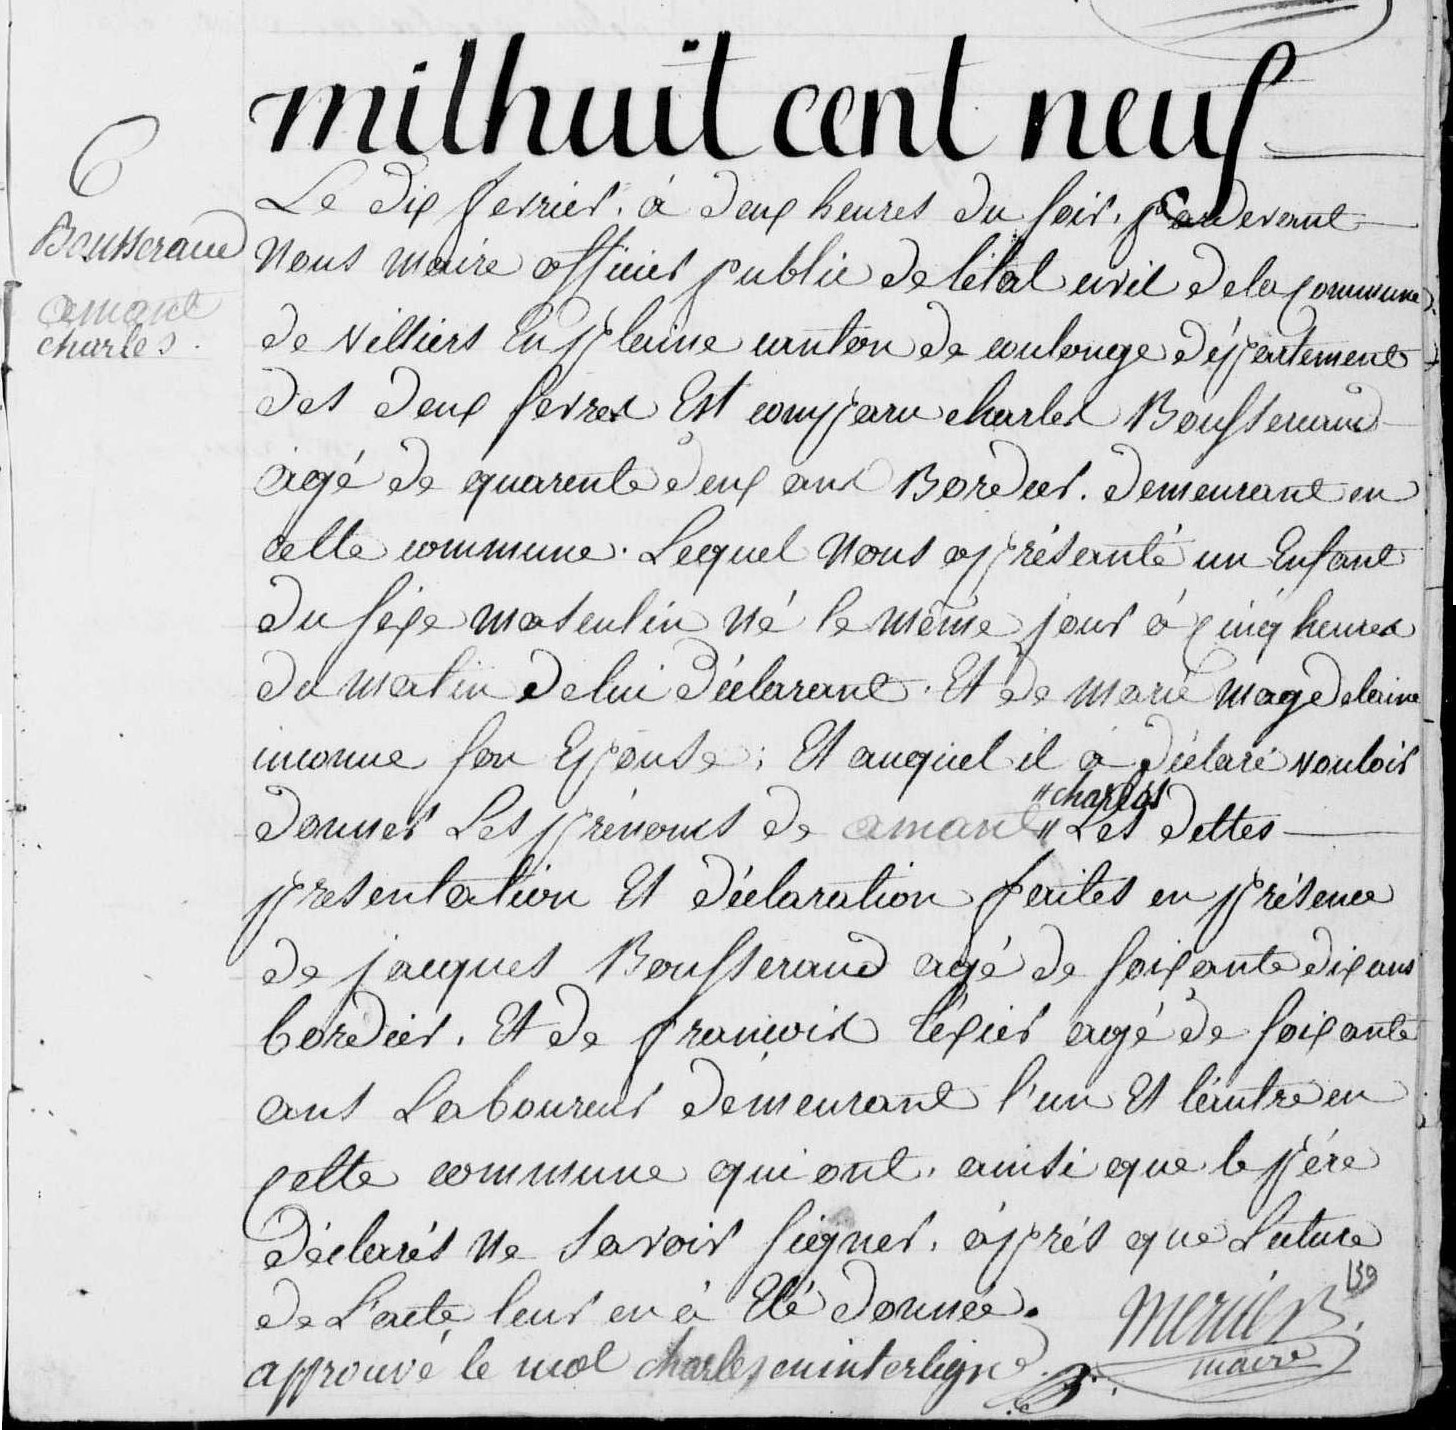 milhuit cent neuf
6
Bousseraud
amant
charles.
Le dix fevrier. à deux heures du soir. pardevant
Nous maire officier public de l'état civil de la commune
de villiers En plaine canton de coulonge département
des deux sevres Est comparu charles Bousseraud
agé de quarente deux ans Bordier. demeurant en
cette commune. Lequel Nous a présenté un Enfant
du sexe masculin Né le même jour à cinq heures
du matin de lui déclarant. Et de marie magdelaine
inconue son Epouse; Et auquel il à déclaré vouloir
"charles
donner Les prénoms de amant " Les dettes
presentation Et déclaration faites en présence
de jacques Bousseraud agé de soixante dix ans
bordier. Et de francois téxier agé de soixante
ans Laboureur demeurant l'un Et l'autre en
cette commune qui ont. ainsi que le pére
déclarés Ne savoir signer. àprés que Lecture
de L'acte leur en à Eté donnée.
approuvé le mot charles en interligne
139
maire